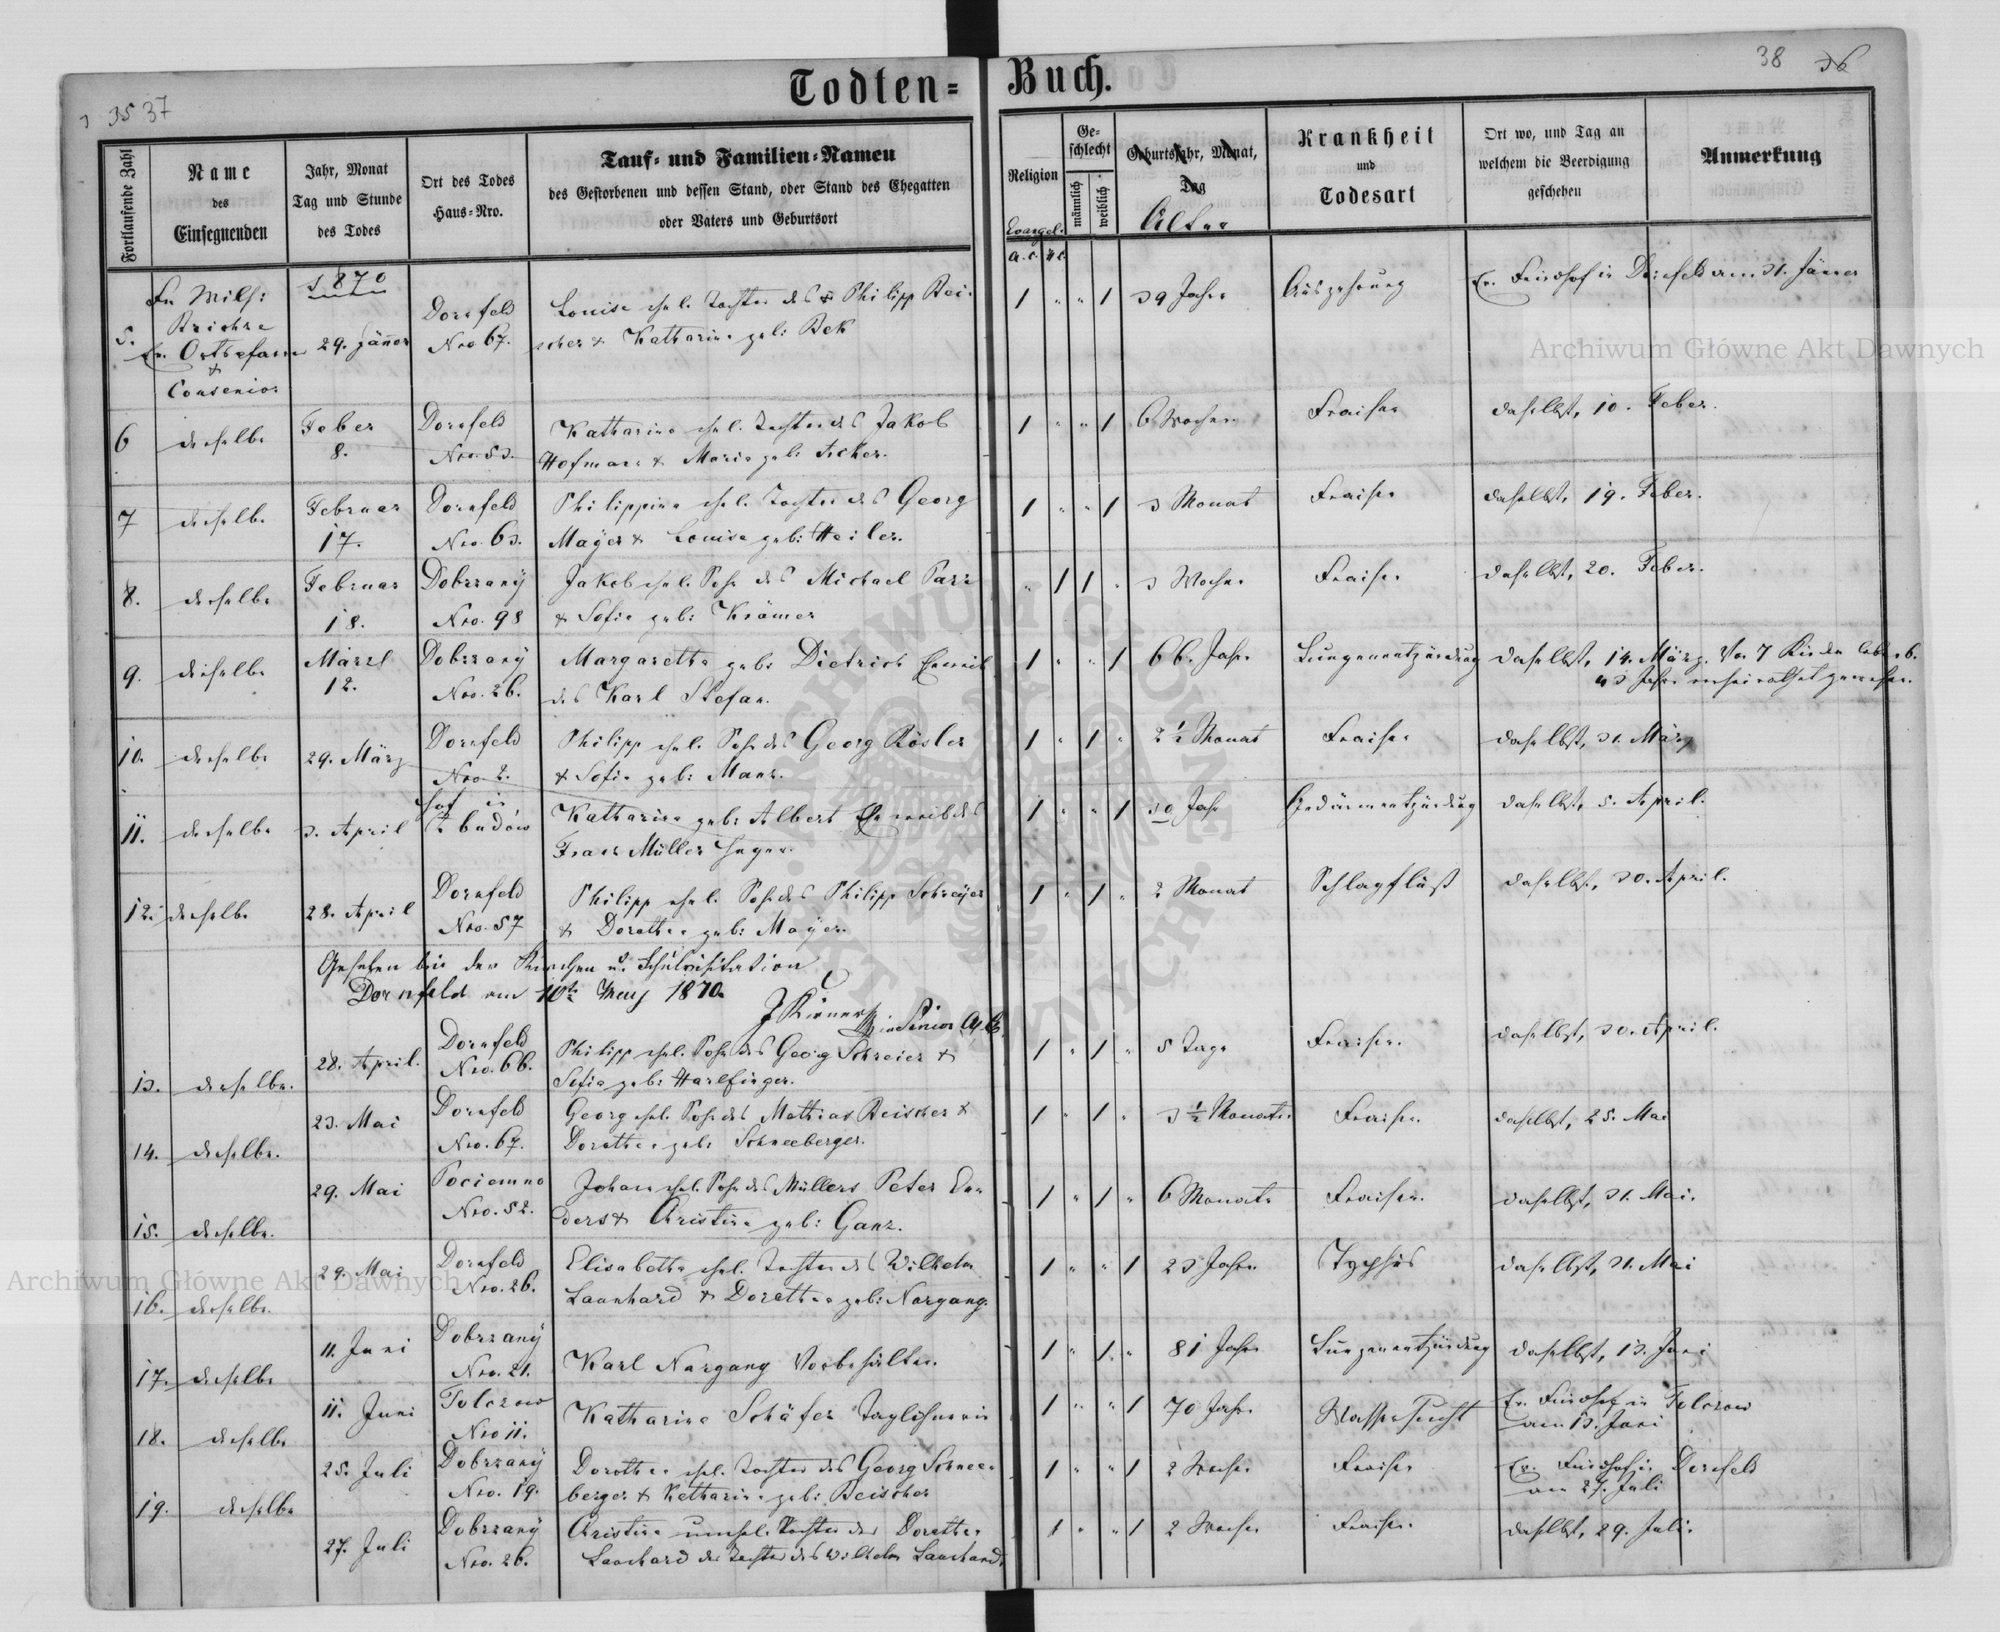 Todten=
Buch.
35 37
38 36
Fortlaufende Zahl
Name
des
Einsegnenden
Jahr, Monat
Tag und Stunde
des Todes
Ort des Todes
Haus=Nro.
Tauf= und Familien=Namen
des Gestorbenen und dessen Stand, oder Stand des Ehegatten
oder Vaters und Geburtsort
Religion
Evangel.
a. c. h c
Ge=
schlecht
männlich
weiblich
Geburtsjahr, Monat,
Tag
Alter
Krankheit
und
Todesart
Ort wo, und Tag an
welchem die Beerdigung
geschehen
Anmerkung
1870
5.
Consenior
29. Jänner
Dornfeld
Nro 67.
Louise ehel. Tochter des Philipp Rei-
scher & Katharina geb: Bek
1 " " 1
39 Jahre
Auszehrung
Ev. Friedhof in Dornfeld am 31. Jänner
6
derselbe
Feber
8.
Dornfeld
Nro. 53.
Katharina ehel. Tochter des Jakob
Hofmann & Maria geb:
1 " " 1
6 Wochen
Fraisen
daselbst, 10. Feber.
7
derselbe
Februar
17.
Dornfeld
Nro. 63.
Philippina ehel. Tochter des Georg
Mayer & Louise geb: Heiler.
1 " " 1
3 Monat
Fraisen
daselbst, 19. Feber.
8.
derselbe
Februar
18.
Dobrzany
Nro. 98
Jakob ehel. Sohn des Michael
& Sofia geb: Krämer
" 1 1 "
3 Wochen
Fraisen
daselbst, 20. Feber.
9.
derselbe
März
12.
Dobrzany
Nro. 26.
Margaretha geb: Dietrich Eheweib
des Karl Stefan.
1 " " 1
66. Jahre
Lungenentzündung
daselbst, 14. März. Von 7 Kinder leben 6.
43 Jahre verheirathet gewesen.
10.
derselbe
29. März
Dornfeld
Nro 2.
Philipp ehel. Sohn des Georg Rösler
& Sofia geb: Manz.
1 " 1 "
2 1/2 Monat
Fraisen
daselbst, 31. März
11.
derselbe
3. April
Katharina geb: Albert Eheweib des
Franz Müller
1 " " 1
30 Jahr
Gedärmentzündung
daselbst, 5. April.
12.
derselbe
28. April
Dornfeld
Nro. 57
Philipp ehel. Sohn des Philipp Schreyer
& Dorothea geb: Mayer.
1 " 1 "
2 Monat
Schlagfluß
daselbst, 30. April.
Gesehen bei der Kirchen u. Schulvisitation
Dornfeld am 10ten May 1870.
Senior
13.
derselbe.
28. April.
Dornfeld
Nro. 66.
Philipp ehel. Sohn des Georg Schreier &
Sofia geb: Harlfinger.
1 " 1 "
5 Tage
Fraisen.
daselbst, 30. April.
14.
derselbe.
23. Mai
Dornfeld
Nro. 67.
Georg ehel. Sohn des Mathias Reischer &
Dorothea geb: Schneeberger.
1 " 1 "
3 1/2 Monate.
Fraisen.
daselbst, 25. Mai
15.
derselbe.
29. Mai
Pociemno
Nro. 52.
Johann ehel. Sohn des Müllers Peter En-
ders & Christina geb: Ganz.
1 " 1 "
6 Monate
Fraisen.
daselbst, 31. Mai.
16.
derselbe.
29. Mai
Dornfeld
Nro. 26.
Elisabetha ehel. Tochter des Wilhelm
Laanhard & Dorothea geb: Nargang.
1 " " 1
23 Jahre
Typhus
daselbst, 31. Mai
17.
derselbe
11. Juni
Dobrzany
Nro. 21.
Karl Nargang Vorbehälter.
1 " 1 "
81 Jahre
Lungenentzündung
daselbst, 13. Juni
18.
derselbe
11. Juni
Nro 11.
Katharina Schäfer Taglöhnerin
1 " " 1
70 Jahre
Wassersucht
Ev. Friedhof in
am 13. Juni
19.
derselbe
25. Juli
Dobrzany
Nro. 19.
Dorothea ehel. Tochter des Georg Schnee-
berger & Katharina geb: Reischer
1 " " 1
2 Wochen
Fraisen
Ev. Friedhof in Dornfeld
am 27. Juli
27. Juli
Dobrzany
Nro. 26.
Christina unehel. Tochter der Dorothea
Laanhard der Tochter des Wilhelm Laanhard.
1 " " 1
2 Wochen
Fraisen.
daselbst, 29. Juli.
Archiwum Główne Akt Dawnych
Archiwum Główne Akt Dawnych
ARCHIWUM GŁÓWNE AKT DAWNYCH